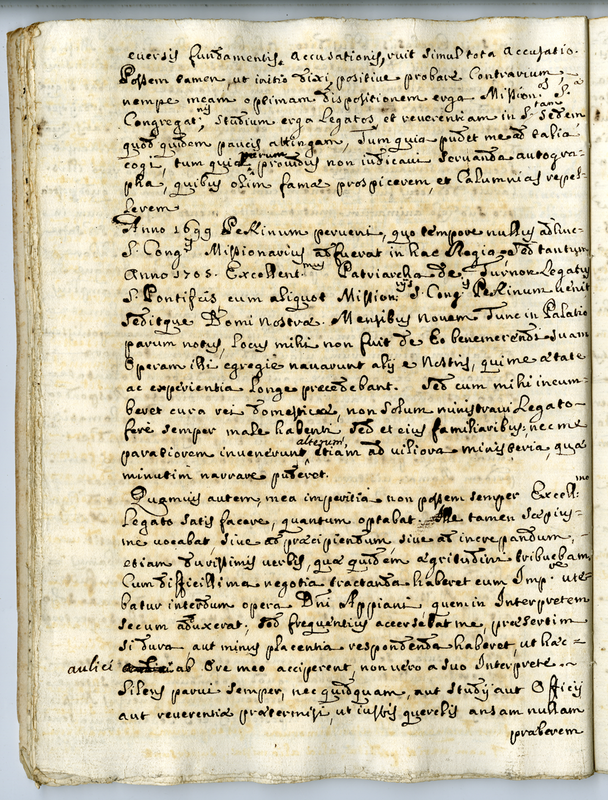 eversis fundamentis accusationis, ruit simul tota accusatio.
Possem tamen, ut initio dixi, positive probare Contrarium,
nempe meam optimam dispositionem erga Mission.os S.a
Congregat.nis, studium erga Legatos, et reverentiam in S.tam Sedem
quod quidem paucis attingam, Tum quia pudet me ad talia
cogi, tum quia parum providus non iudicavi servanda autogra-
pha, quibus olim famae prospicerem, et Calumnias repel-
lerem
Anno 1699 Pekinum perveni, quo tempore nullus adhuc
S. Cong.is Missionarius adfuerat in hac Regia; sed tantum
Anno 1705. Excellent.mus Patriarcha de Turnon Legatus
S. Pontificis cum aliquot Mission.ijs S. Cong.is Pekinum venit
seditque Domi nostrae. Mensibus novem Tunc in Palatio
parum notus, locus mihi non fuit de Eo benemerendi; suam
Operam ibi egregie navarunt alij e Nostris, qui me aetate
ac experientia longe precedebant. Sed cum mihi incum-
beret cura rei domesticae, non solum ministravi Legato
fere semper male habenti sed et eius familiaribus; nec me
paratiorem invenerunt alterum, etiam ad viliora ministeria, quae
minutim narrare puderet.
Quamvis autem, mea imperitia non possem semper Excell.mo
Legato satis facere, quantum optabat; Ille tamen saepius
me vocabat, sive ad praecipiendum, sive ad increpandum,
etiam durissimis verbis, quae quidem aegritudini tribuebam.
Cum difficillima negotia tractanda haberet cum Imp.re ute-
batur interdum opera Dni Appiani quem in Interpretem
secum adduxerat; sed frequentius accersebat me, praesertim
si dura aut minus placentia respondenda haberet, ut haec
aulici ab Ore meo acciperent, non vero a suo Interprete
Silens parui semper, nec quidquam, aut studij aut Officij
aut reverentiae praetermisi, ut iustis querelis ansam nullam
praeberem